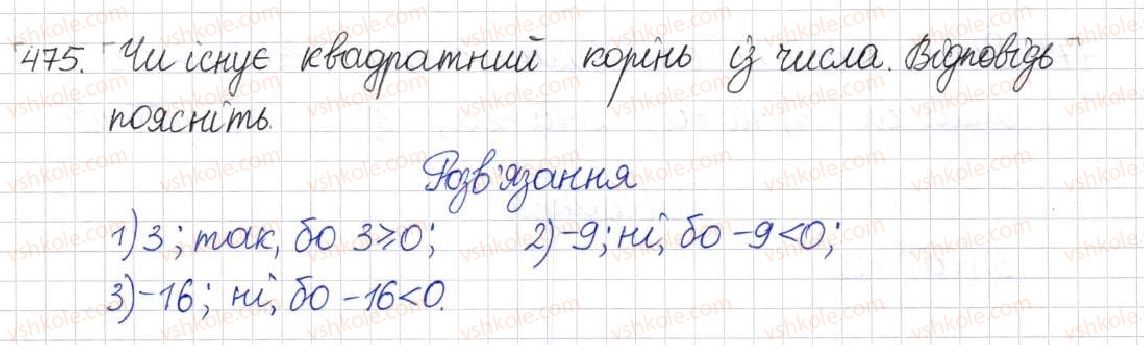 475. Чи існує квадратний корінь із числа. Відповідь
поясніть.
Розв'язання
1) 3; так, бо 3≥0; 2) -9; ні, бо -9<0;
3) -16; ні, бо -16<0.